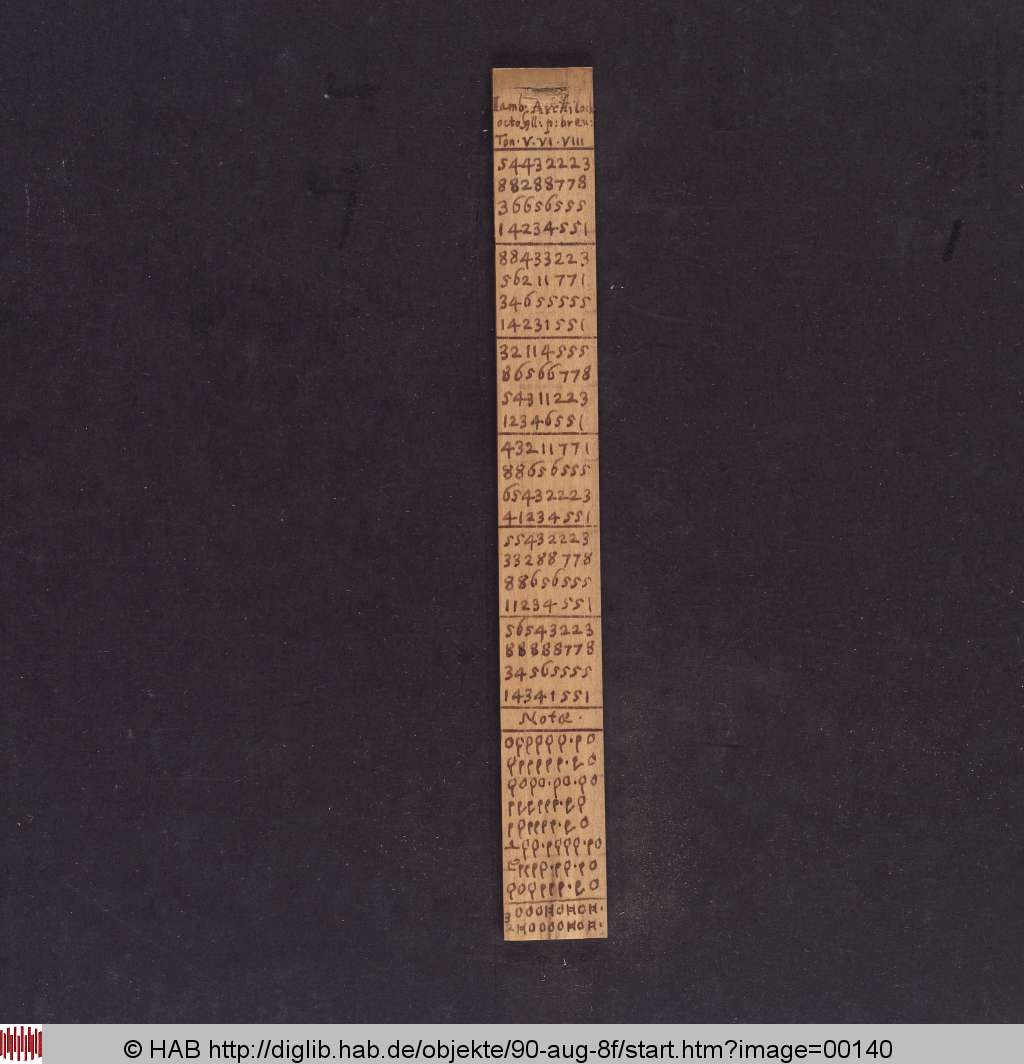 Iamb: Archiloch
octosyll: p: breu:
Ton. V. VI. VIII
54432223
88288778
36656555
14234551
88433223
56211771
34655555
14231551
32114555
86566778
54311223
12346551
43211771
88656555
65432223
41234551
55432223
33288778
88656555
11234551
56543223
88888778
34565555
14341551
Notæ.
© HAB http://diglib.hab.de/objekte/90-aug-8f/start.htm?image=00140